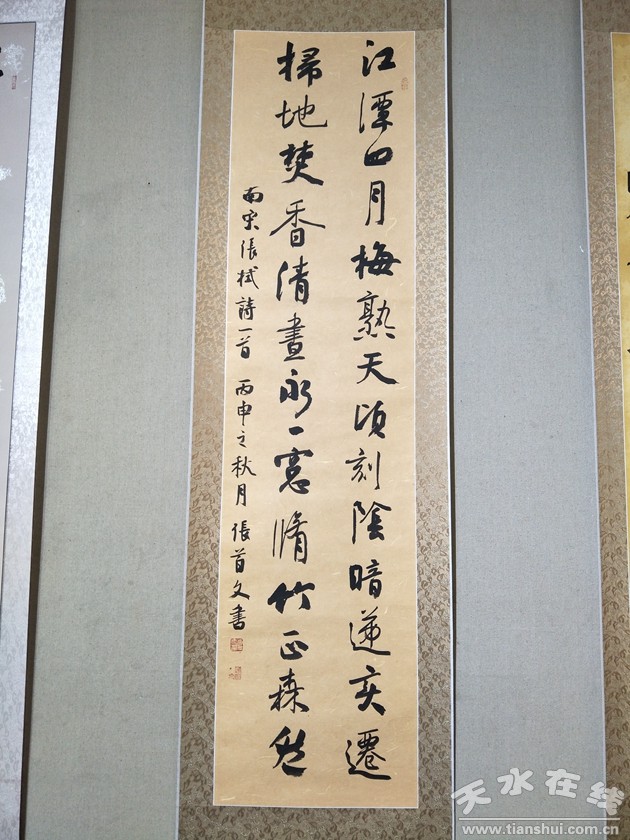 江潭四月梅熟天頃刻陰暗递変遷
掃地焚香清晝永一窓脩竹正森然
南宋張栻詩一首 丙申之秋月 張首文書
天水在线
www.tianshui.com.cn